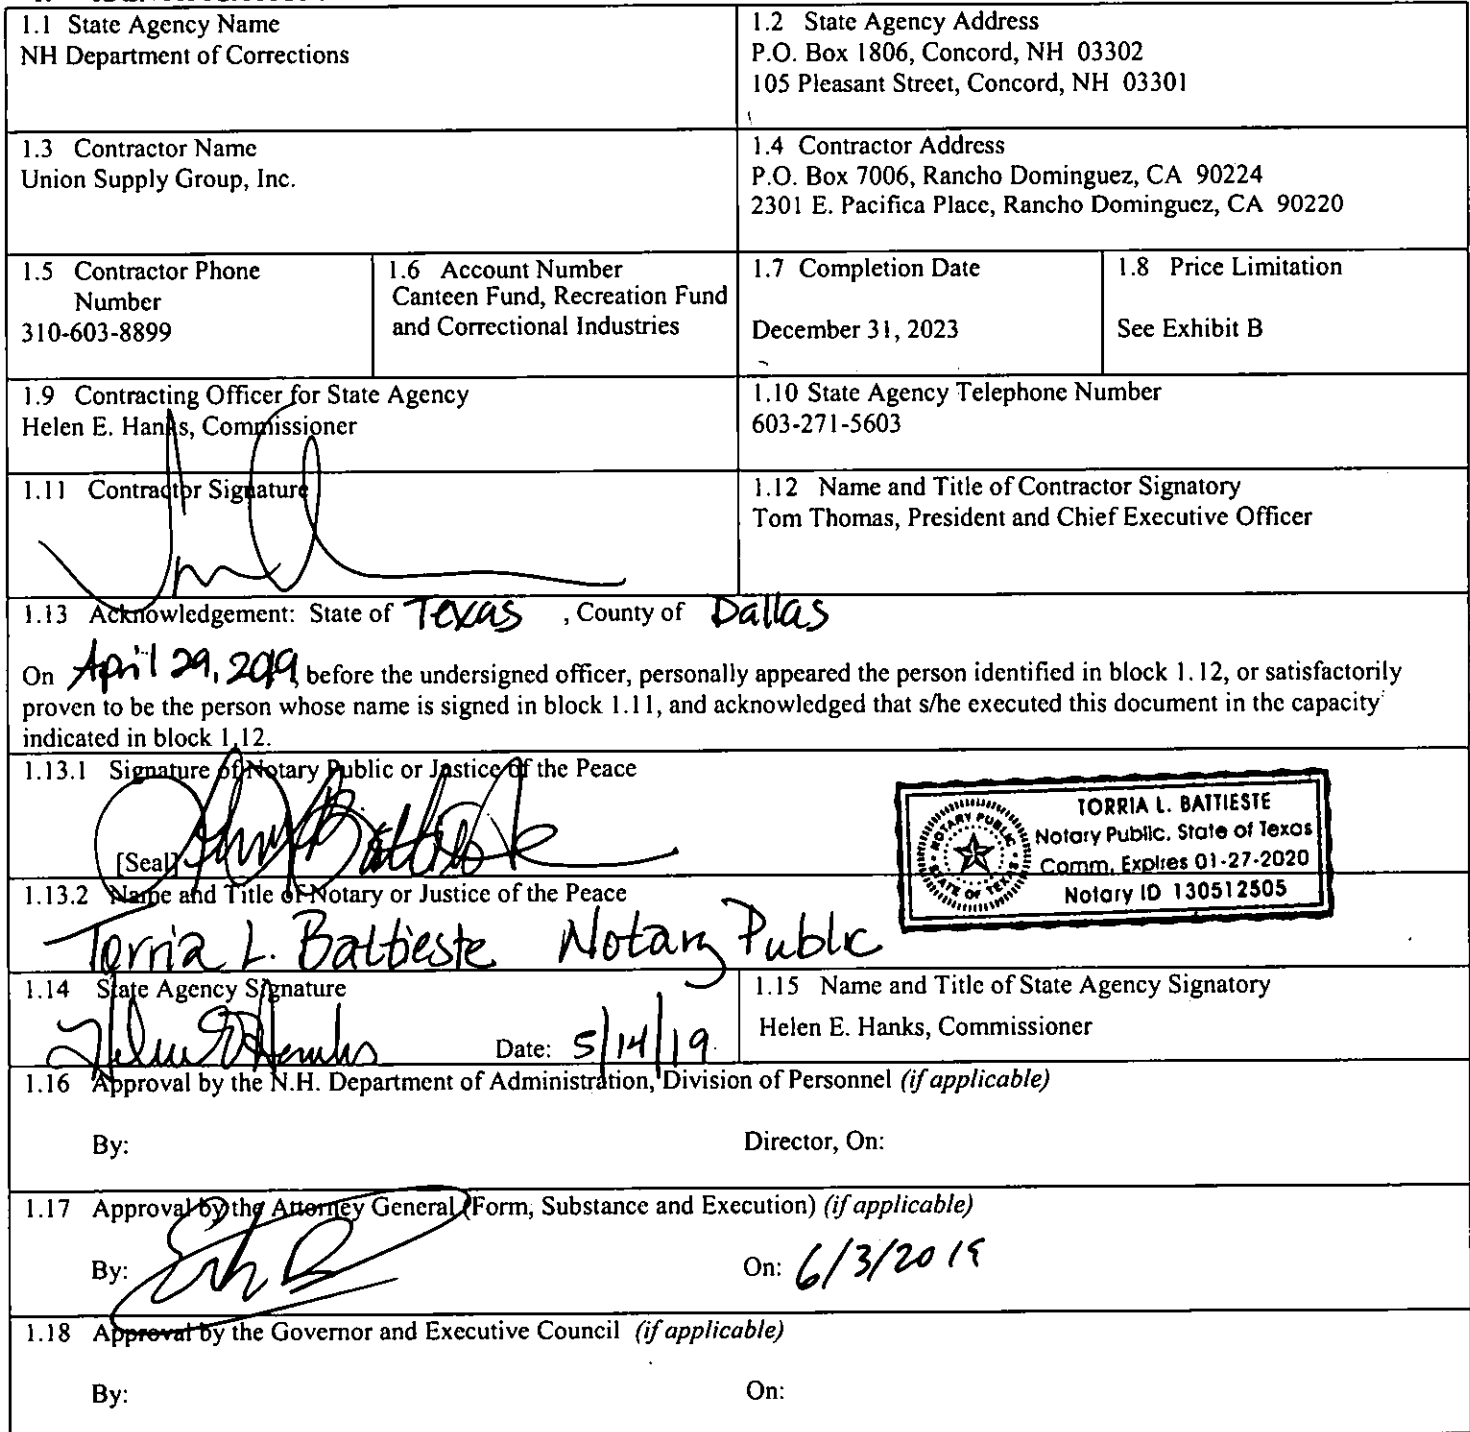 1.1 State Agency Name
NH Department of Corrections
1.2 State Agency Address
P.O. Box 1806, Concord, NH 03302
105 Pleasant Street, Concord, NH 03301
1.3 Contractor Name
Union Supply Group, Inc.
1.4 Contractor Address
P.O. Box 7006, Rancho Dominguez, CA 90224
2301 E. Pacifica Place, Rancho Dominguez, CA 90220
1.5 Contractor Phone
Number
310-603-8899
1.6 Account Number
Canteen Fund, Recreation Fund
and Correctional Industries
1.7 Completion Date
December 31, 2023
1.8 Price Limitation
See Exhibit B
1.9 Contracting Officer for State Agency
Helen E. Hanks, Commissioner
1.10 State Agency Telephone Number
603-271-5603
1.11 Contractor Signature
1.12 Name and Title of Contractor Signatory
Tom Thomas, President and Chief Executive Officer
1.13 Acknowledgement: State of Texas , County of Dallas
On April 29, 2019, before the undersigned officer, personally appeared the person identified in block 1.12, or satisfactorily
proven to be the person whose name is signed in block 1.11, and acknowledged that s/he executed this document in the capacity
indicated in block 1.12.
1.13.1 Signature of Notary Public or Justice of the Peace
[Seal]
TORRIA L. BATTIESTE
Notary Public, State of Texas
Comm. Expires 01-27-2020
Notary ID 130512505
NOTARY PUBLIC
STATE OF TEXAS
1.13.2 Name and Title of Notary or Justice of the Peace
Torria L. Battieste Notary Public
1.14 State Agency Signature
Helen E Hanks Date: 5/14/19
1.15 Name and Title of State Agency Signatory
Helen E. Hanks, Commissioner
1.16 Approval by the N.H. Department of Administration, Division of Personnel (if applicable)
By: Director, On:
1.17 Approval by the Attorney General (Form, Substance and Execution) (if applicable)
By: On: 6/3/2019
1.18 Approval by the Governor and Executive Council (if applicable)
By: On: